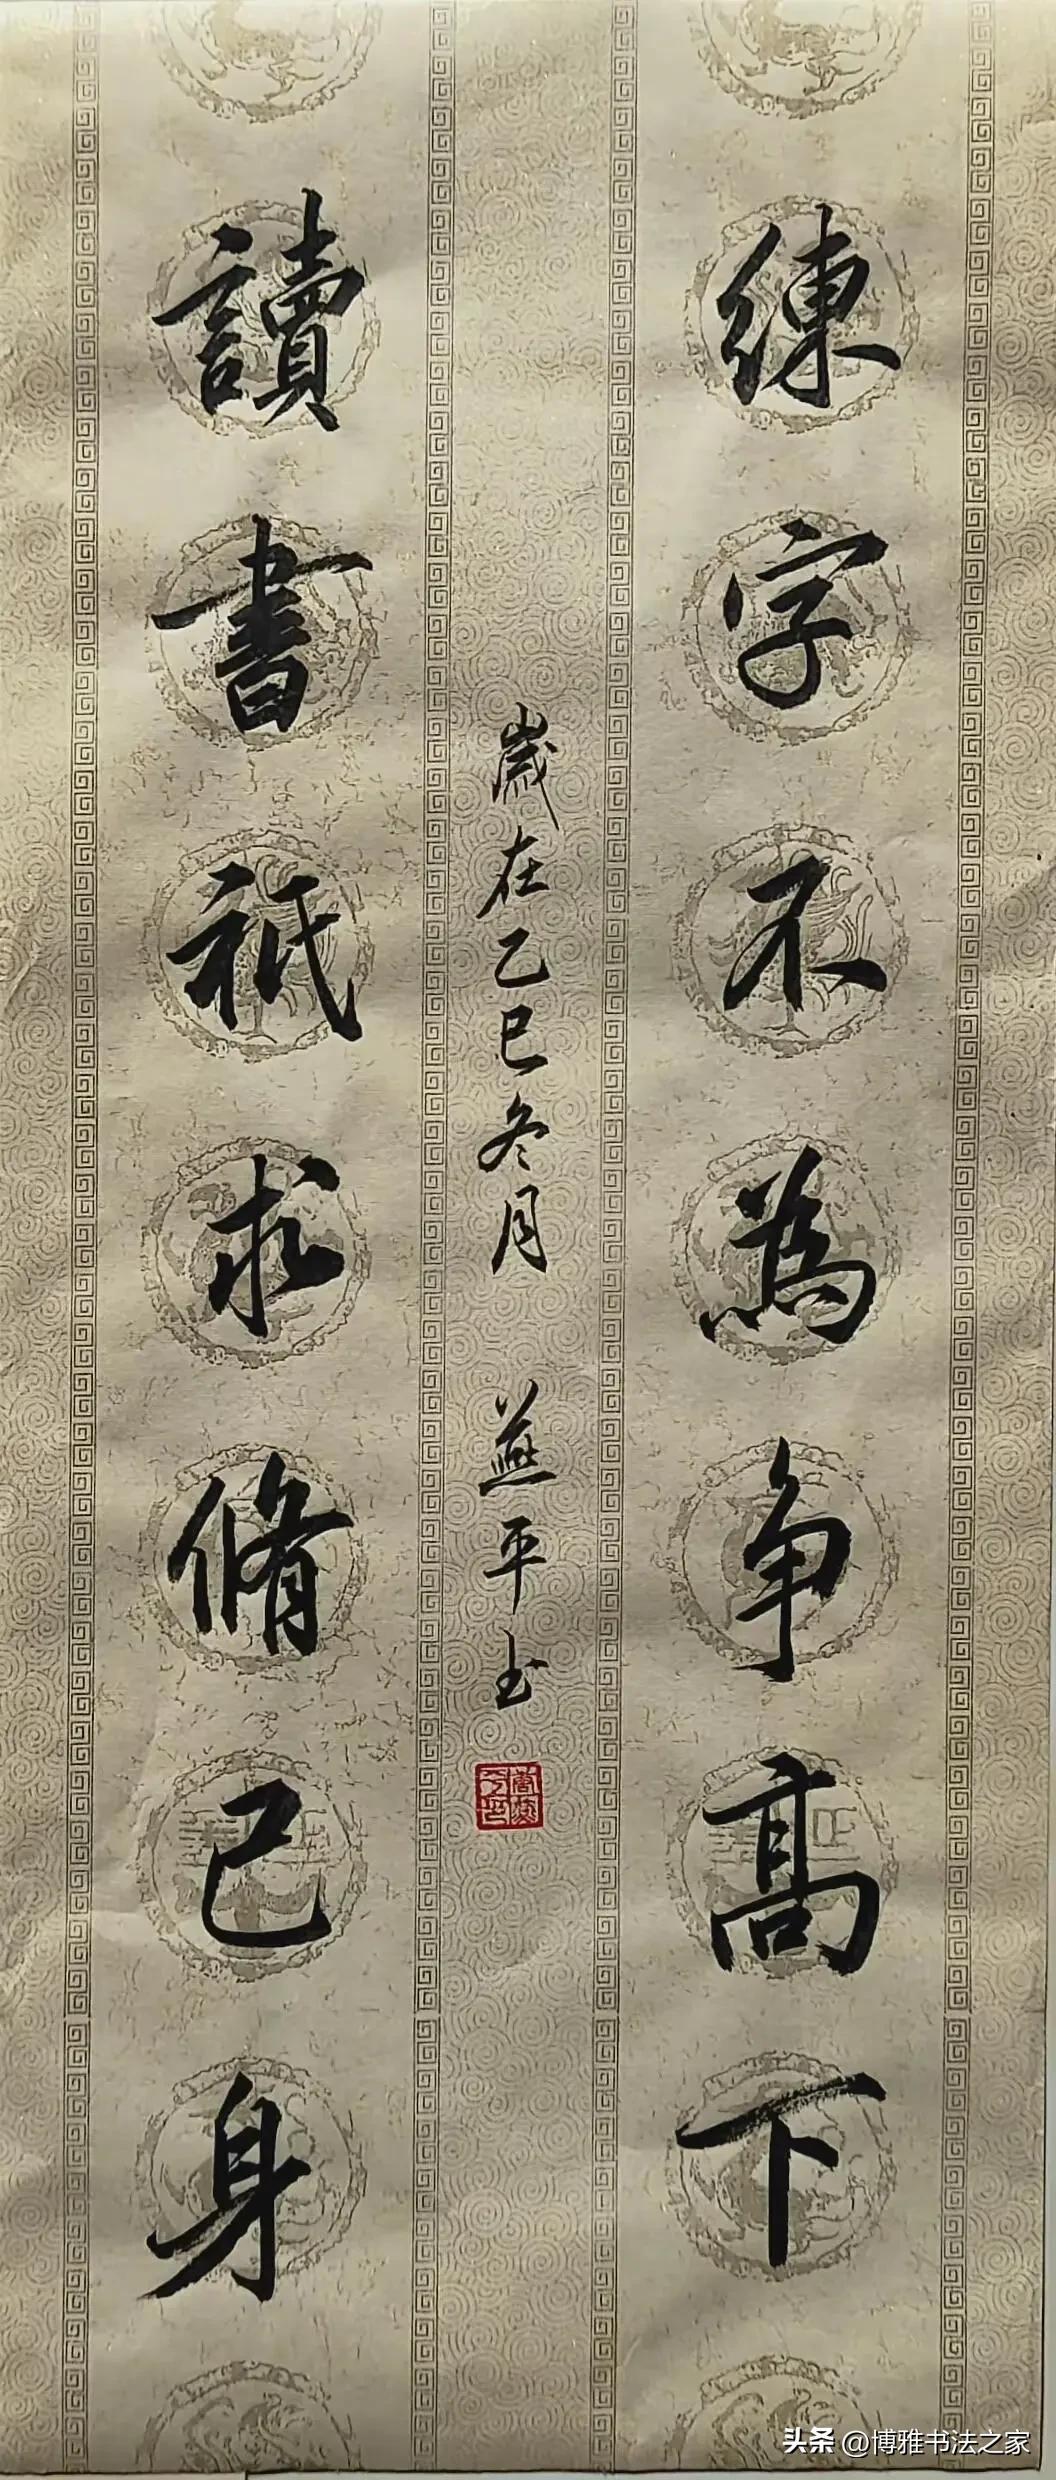 練字不為争高下
讀書祇求脩己身
歲在乙巳冬月 燕平书
头条 @博雅书法之家